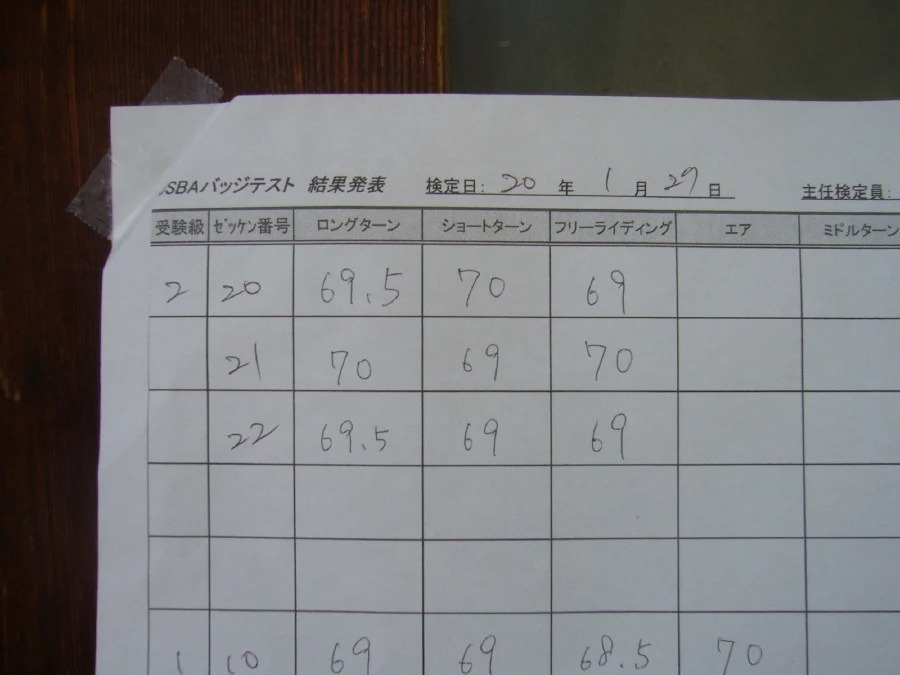 JSBAバッジテスト 結果発表 検定日: 20 年 1 月 27 日 主任検定員:
受験級 ゼッケン番号 ロングターン ショートターン フリーライディング エア ミドルターン
2 20 69.5 70 69
21 70 69 70
22 69.5 69 69
1 10 69 69 68.5 70